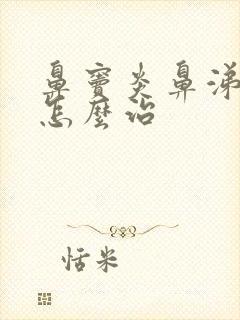 鼻窦炎鼻涕
怎麼治
恬米